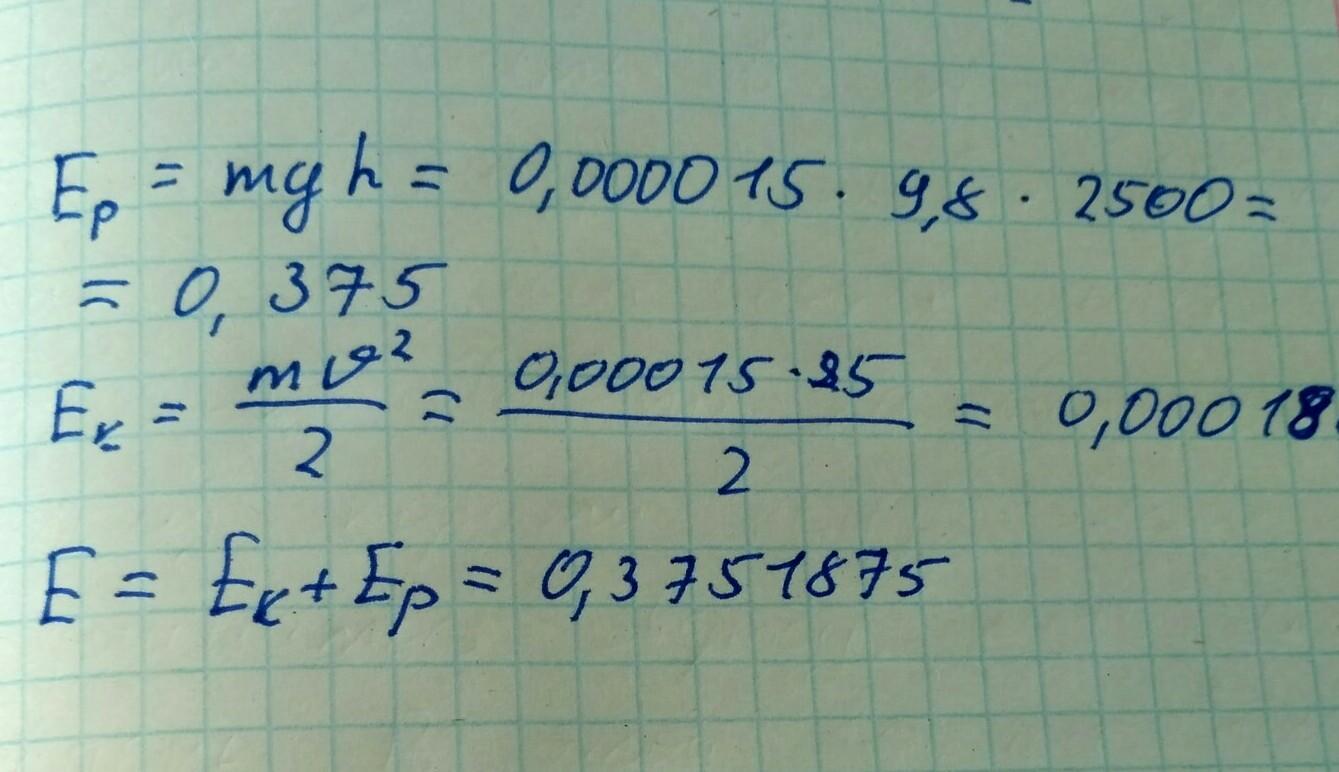 Eₚ = mgh = 0,000015 · 9,8 · 2500 =
= 0,375
Eₖ = mv²/2 = 0,00015·25/2 = 0,00018
E = Eₖ + Eₚ = 0,3751875